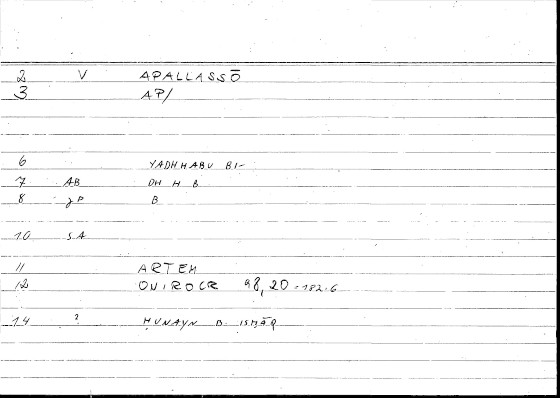 2 V APALLASSŌ
3 AP/
6 YADHHABU BI-
7 AB DH H B
8 JP B
10 SA
11 ARTEM
12 ONIROCR 98,20 = 182.6
14 ? HUNAYN B. ISḤĀQ